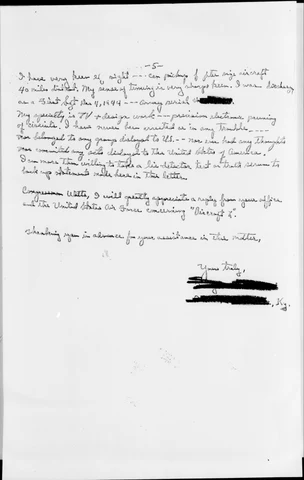 -5-
I have very keen eye sight --- can pickup jet size aircraft
40 miles distant. My sense of timing is very sharp & keen. I was discharged
as a First Sgt Dec 4, 1944 --- Army serial
My specialty is TV & design work -- precision electronic pruning
of circuits. I have never been arrested or in any trouble ---
nor belonged to any group disloyal to U.S. -- nor ever had any thoughts
nor committed any acts disloyal to the United States of America.
I am more than willing to take a lie detector test or truth serum to
back up statements made here in this letter.
Congressman Watts, I will greatly appreciate a reply from your office
and the United States Air Force concerning "Aircraft X".
Thanking you in advance for your assistance in this matter,
Yours truly,
Ky.